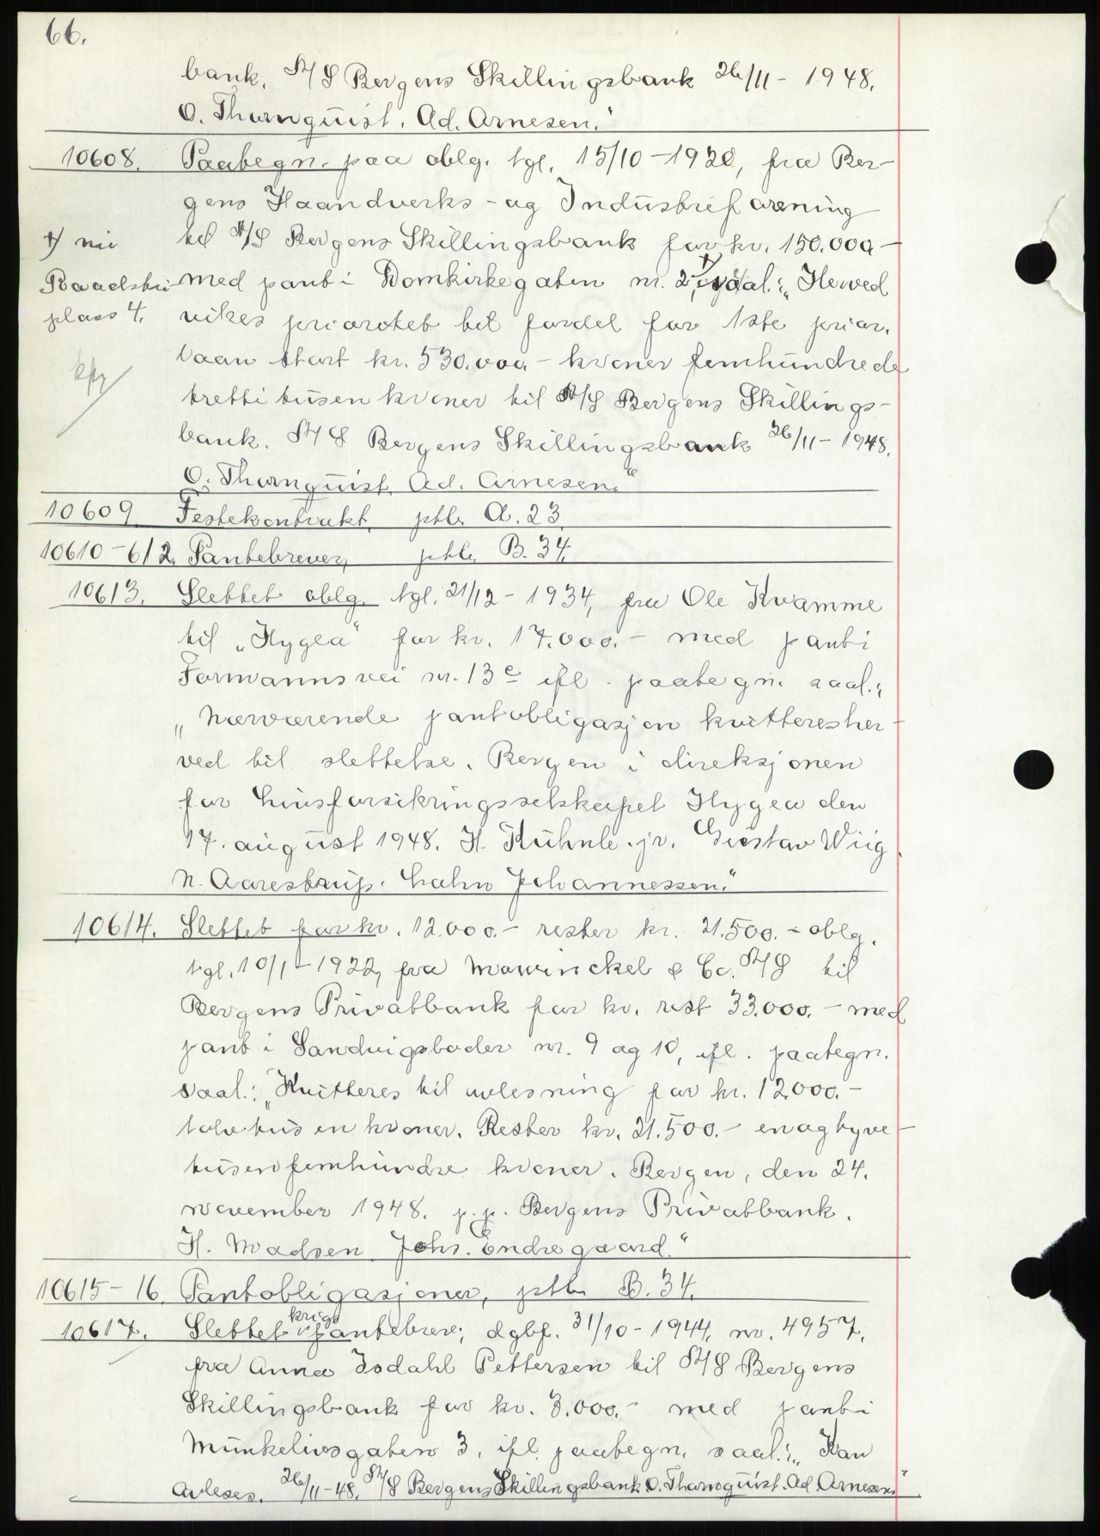 66.
bank. A/S Bergens Skillingsbank 26/11 - 1948.
O. Thornquist. Ad. Arnesen."
10608. Paabegn. paa oblg. tgl. 15/10 - 1920, fra Ber-
gens Haandverks- og Industriforening
til A/S Bergens Skillingsbank for kr. 150.000 -
x) nu
Raadstu-
plass 4.
med pant i Domkirkegaten nr. 2, x) saal.: "Herved
vikes prioritet til fordel for 1ste prior.
laan stort kr. 530.000.- kroner femhundrede
tretti tusen kroner til A/S Bergens Skillings-
bank. A/S Bergens Skillingsbank 26/11 - 1948.
O. Thornquist. Ad. Arnesen."
10609. Festekontrakt, ptbl. A. 23.
10610-612. Pantebrever, ptbl. B. 34.
10613. Slettet oblg. tgl. 21/12 - 1934, fra Ole Kvamme
til "Hygea" for kr. 17.000.- med pant i
Formannsvei nr. 13 e ifl. paategn. saal.:
"Nærværende pantobligasjon kvitteres her-
ved til slettelse. Bergen i direksjonen
for Livsforsikringsselskapet Hygea den
17. august 1948. H. Kuhnle. jr. Gustav Wiig.
N. Aarestrup. Cahn Johannessen."
10614. Slettet for kr. 12.000.- rester kr. 21.500.- oblg.
tgl. 10/1 - 1922, fra Mowinckel & Co. A/S til
Bergens Privatbank for kr. rest 33.000.- med
pant i Sandvigsboder nr. 9 og 10, ifl. paategn.
saal.: "Kvitteres til avlesning for kr. 12000.-
tolv tusen kroner. Rester kr. 21.500.- enogtyve-
tusenfemhundre kroner. Bergen, den 24.
november 1948. p.p. Bergens Privatbank.
H. Madsen Johs. Endregaard."
10615-16. Pantobligasjoner, ptbl. B. 34.
krigs
10617. Slettet pantebrev; dgbf. 31/10 - 1944, nr. 4957,
fra Anna Isdahl Pettersen til A/S Bergens
Skillingsbank for kr. 3.000.- med pant i
Munkelivsgaten 3, ifl. paategn. saal.: "Kan
avleses. 26/11-48. A/S Bergens Skillingsbank O. Thornquist. Ad Arnesen."